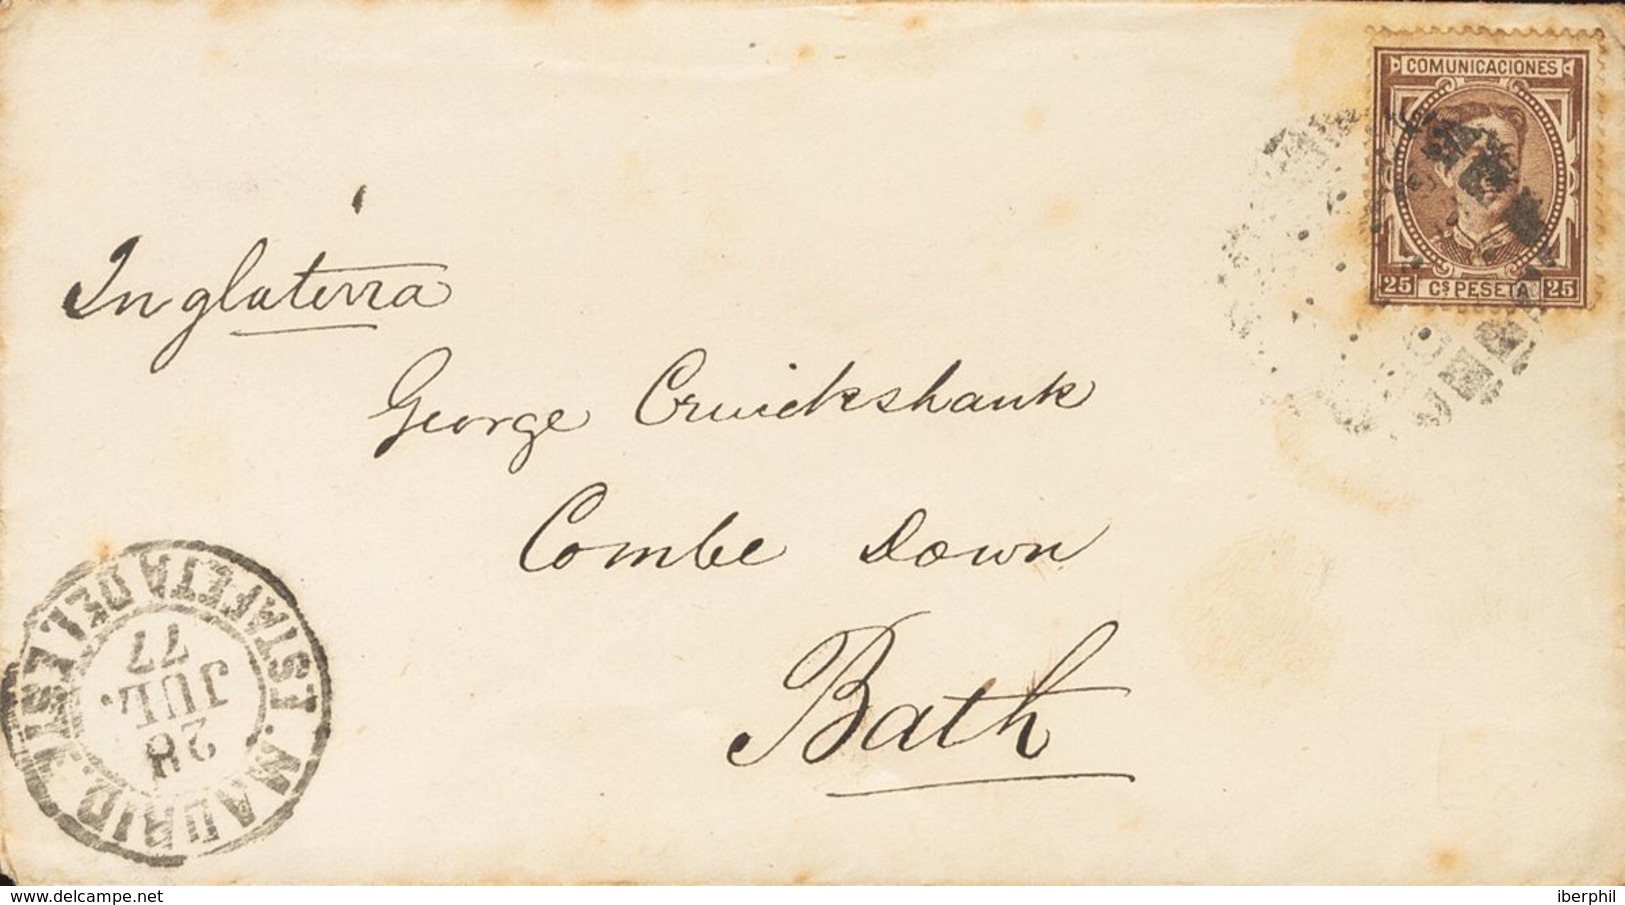 COMUNICACIONES
25 Cs PESETA 25
Inglaterra
George Cruickshank
Combe Down
Bath
ESTAFETA DEL ESTE
MADRID
28
JUL.
77
delcampe.net
iberphil